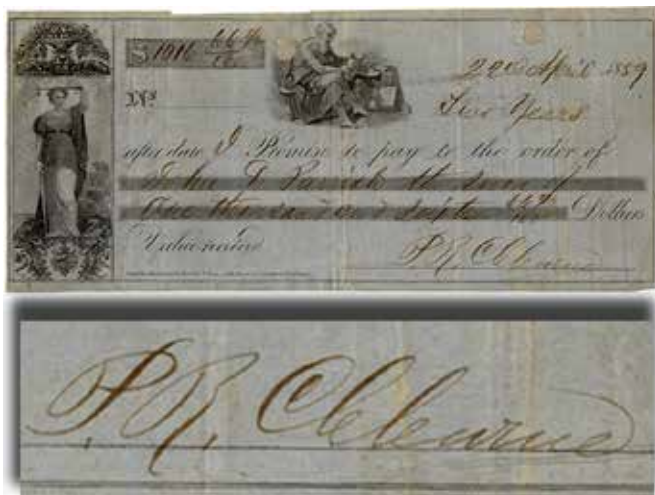 $1016 66⅔
22d April 1859
No
Two Years
after date I Promise to pay to the order of
John J the sum of
One thousand and sixteen Dollars
Value received
P.R. Cleburne
P.R. Cleburne